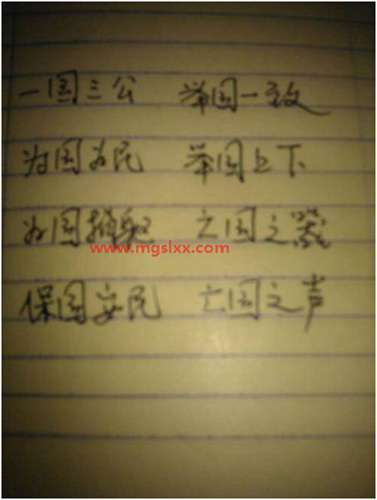 一国三公 举国一致
为国为民 举国上下
为国捐躯 亡国之器
www.mgslxx.com
保国安民 亡国之声